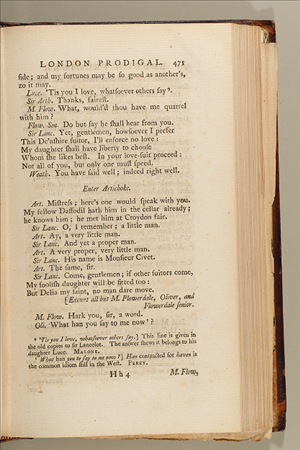 LONDON PRODIGAL. 471
side; and my fortunes may be so good as another's,
zo it may.
Luce. 'Tis you I love, whatsoever others say ⁹.
Sir Arth. Thanks, fairest.
M. Flow. What, would'st thou have me quarrel
with him?
Flow. Sen. Do but say he shall hear from you.
Sir Lanc. Yet, gentlemen, howsoever I prefer
This De'nshire suitor, I'll enforce no love:
My daughter shall have liberty to choose
Whom she likes best. In your love-suit proceed:
Not all of you, but only one must speed.
Weath. You have said well; indeed right well.
Enter Artichoke.
Art. Mistress; here's one would speak with you.
My fellow Daffodil hath him in the cellar already;
he knows him; he met him at Croydon fair.
Sir Lanc. O, I remember; a little man.
Art. Ay, a very little man.
Sir Lanc. And yet a proper man.
Art. A very proper, very little man.
Sir Lanc. His name is Monsieur Civet.
Art. The same, sir.
Sir Lanc. Come, gentlemen; if other suitors come,
My foolish daughter will be fitted too:
But Delia my saint, no man dare move.
[Exeunt all but M. Flowerdale, Oliver, and
Flowerdale senior.
M. Flow. Hark you, sir, a word.
Oli. What han you say to me now ¹?
⁹ 'Tis you I love, whatsoever others say.] This line is given in
the old copies to sir Lancelot. The answer shews it belongs to his
daughter Luce. MALONE.
¹ What han you to say to me now?] Han contracted for haven is
the common idiom still in the West. PERCY.
H h 4 M. Flow,